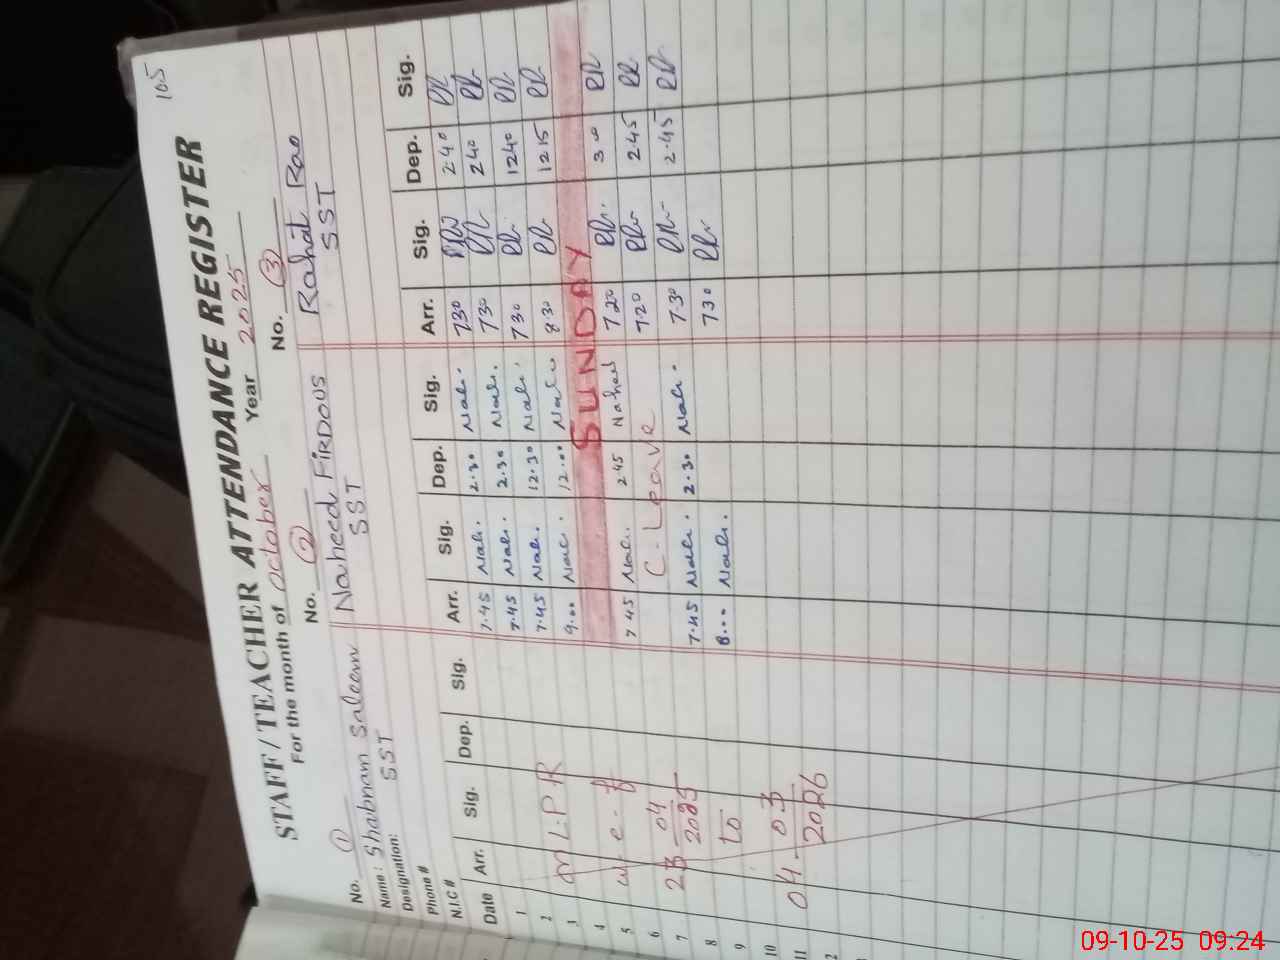 105
STAFF / TEACHER ATTENDANCE REGISTER
For the month of October Year 2025
No. 1 No. 2 No. 3
Name : Shabnam Saleem Naheed FIRDOUS Rahat Rao
Designation: SST SST SST
Phone #
N.I.C #
Date Arr. Sig. Dep. Sig. Arr. Sig. Dep. Sig. Arr. Sig. Dep. Sig.
1 7.45 Nah. 2.30 Nah. 730 2.40
2 7.45 Nah. 2.30 Nah. 730 240
3 7.45 Nah. 12.30 Nah. 730 1240
4 9.00 Nah. 12.00 Nah. 8.30 1215
5 SUNDAY
6 7.45 Nah. 2.45 Nahed 720 3.00
7 C. Leave 720 2.45
8 7.45 Nah. 2.30 Nah. 730 2.45
9 8.00 Nah. 730
10
11
L.P.R
w.e.f
23-04
2025
to
04-03
2026
09-10-25 09:24